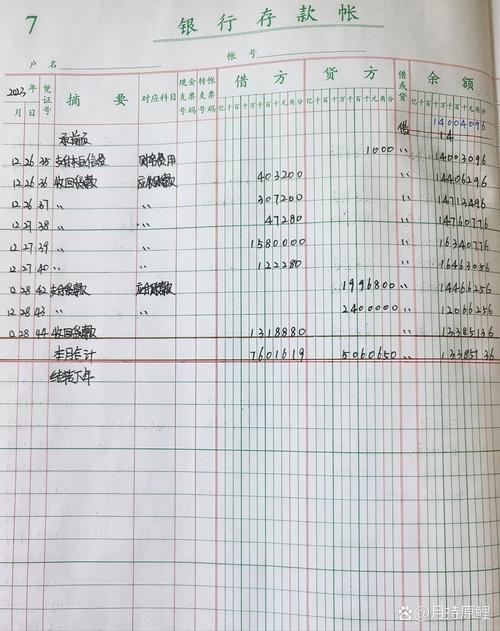 7 银行存款帐
户名 帐号
2023 凭证号 摘要 对应科目 现金支票号码 转帐支票号码 借方 贷方 借或贷 余额
月 日 亿千百十万千百十元角分 亿千百十万千百十元角分 亿千百十万千百十元角分
承前页 借 14004096
14
12 26 35 支付 信费 财务费用 1000 〃 14003096
12 26 36 收回货款 应收账款 403200 〃 14406296
12 26 37 〃 〃 307200 〃 14713496
12 27 38 〃 〃 47280 〃 14760776
12 27 39 〃 〃 1580000 〃 16340776
12 27 40 〃 〃 122280 〃 16463056
12 28 42 支付货款 应付账款 1996800 〃 14466256
12 28 43 〃 〃 2400000 〃 12066256
12 28 44 收回货款 1318880 〃 13385136
本月合计 7601619 5060650 〃 13385136
结转下年
Bai百科 @月持原鲤